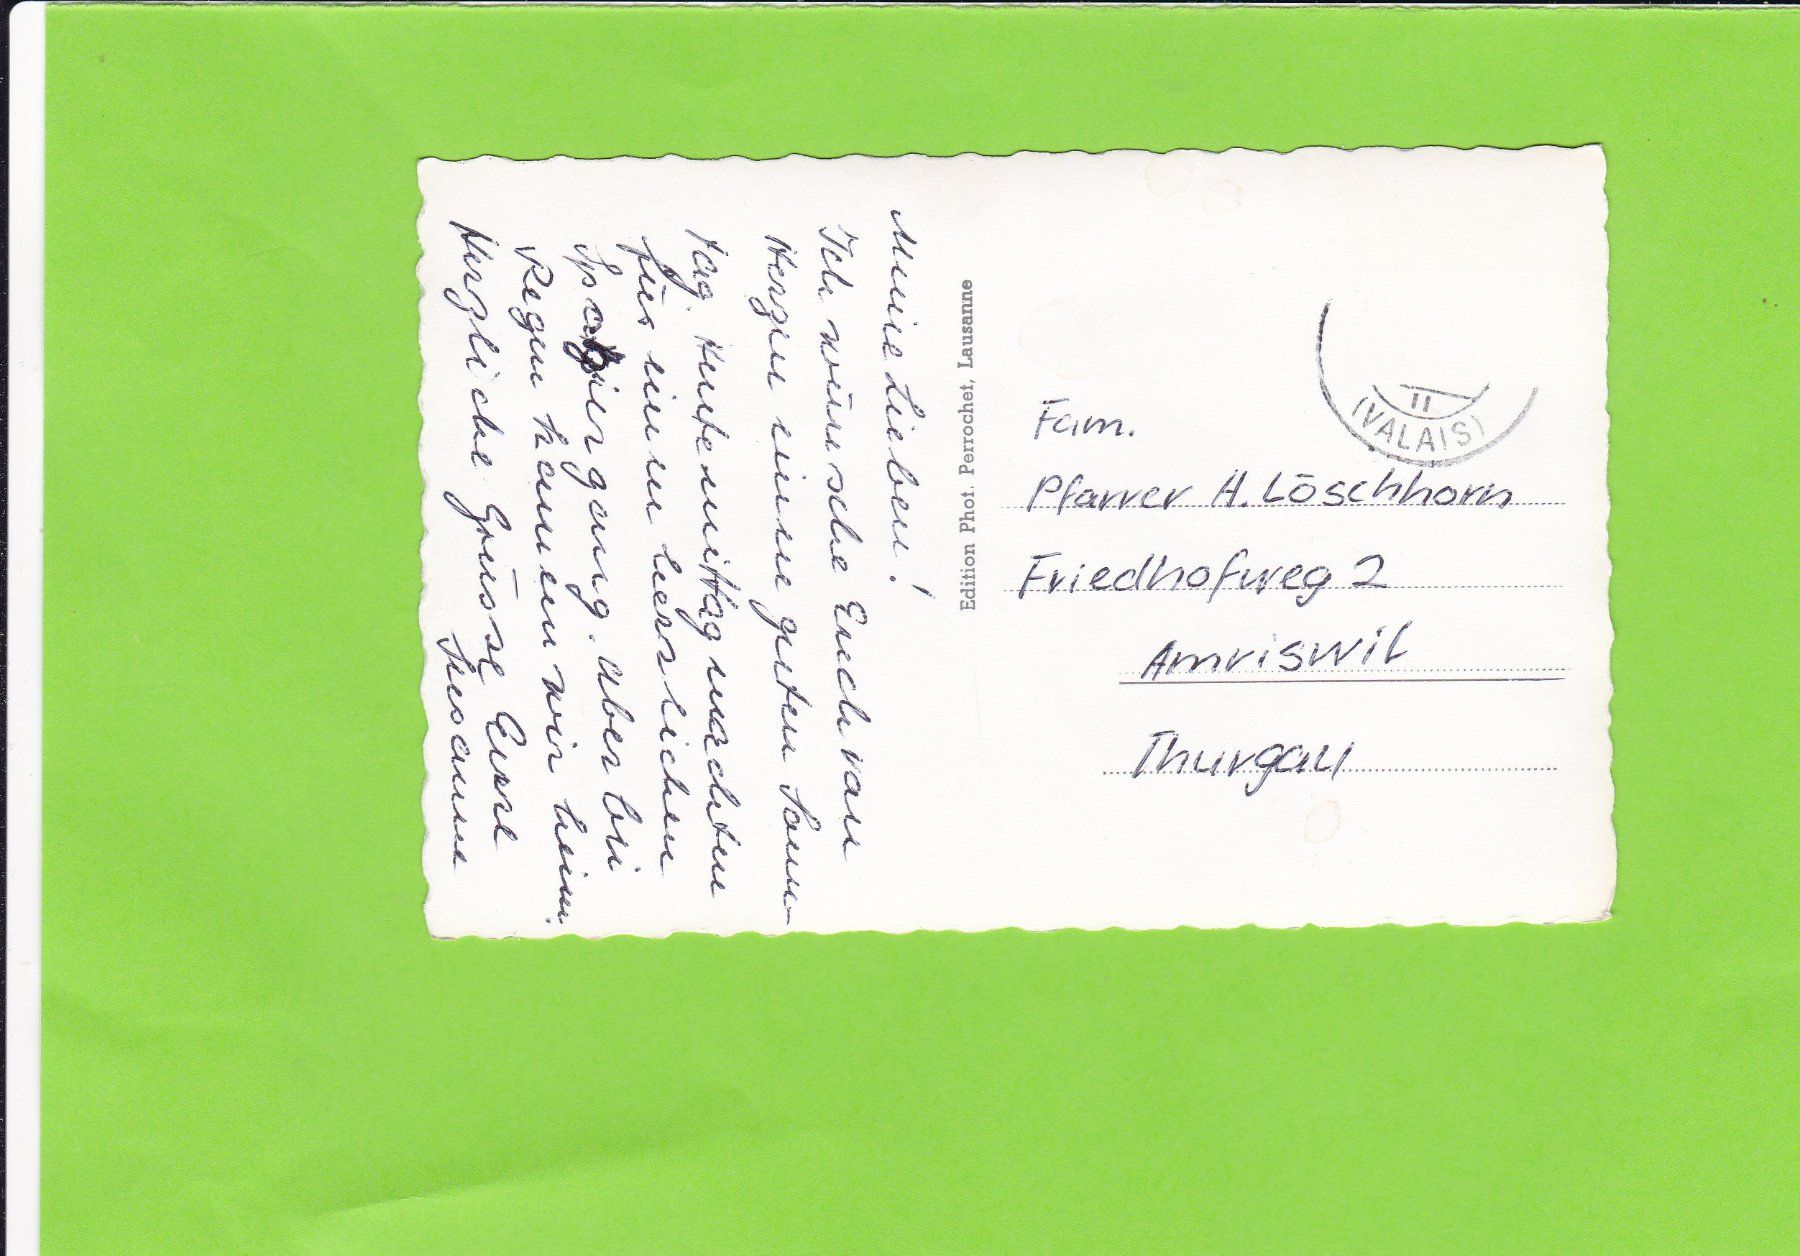 Meine Lieben!
Ich wünsche Euch von
Herzen einen guten Sonn-
tag. Heute mittag machten
für einen herrlichen
Spaziergang. Aber bei
Regen kamen wir heim.
Herzliche Grüsse Eure
Susanne
Edition Phot. Perrochet, Lausanne
II
(VALAIS)
Fam.
Pfarrer H. Löschhorn
Friedhofweg 2
Amriswil
Thurgau